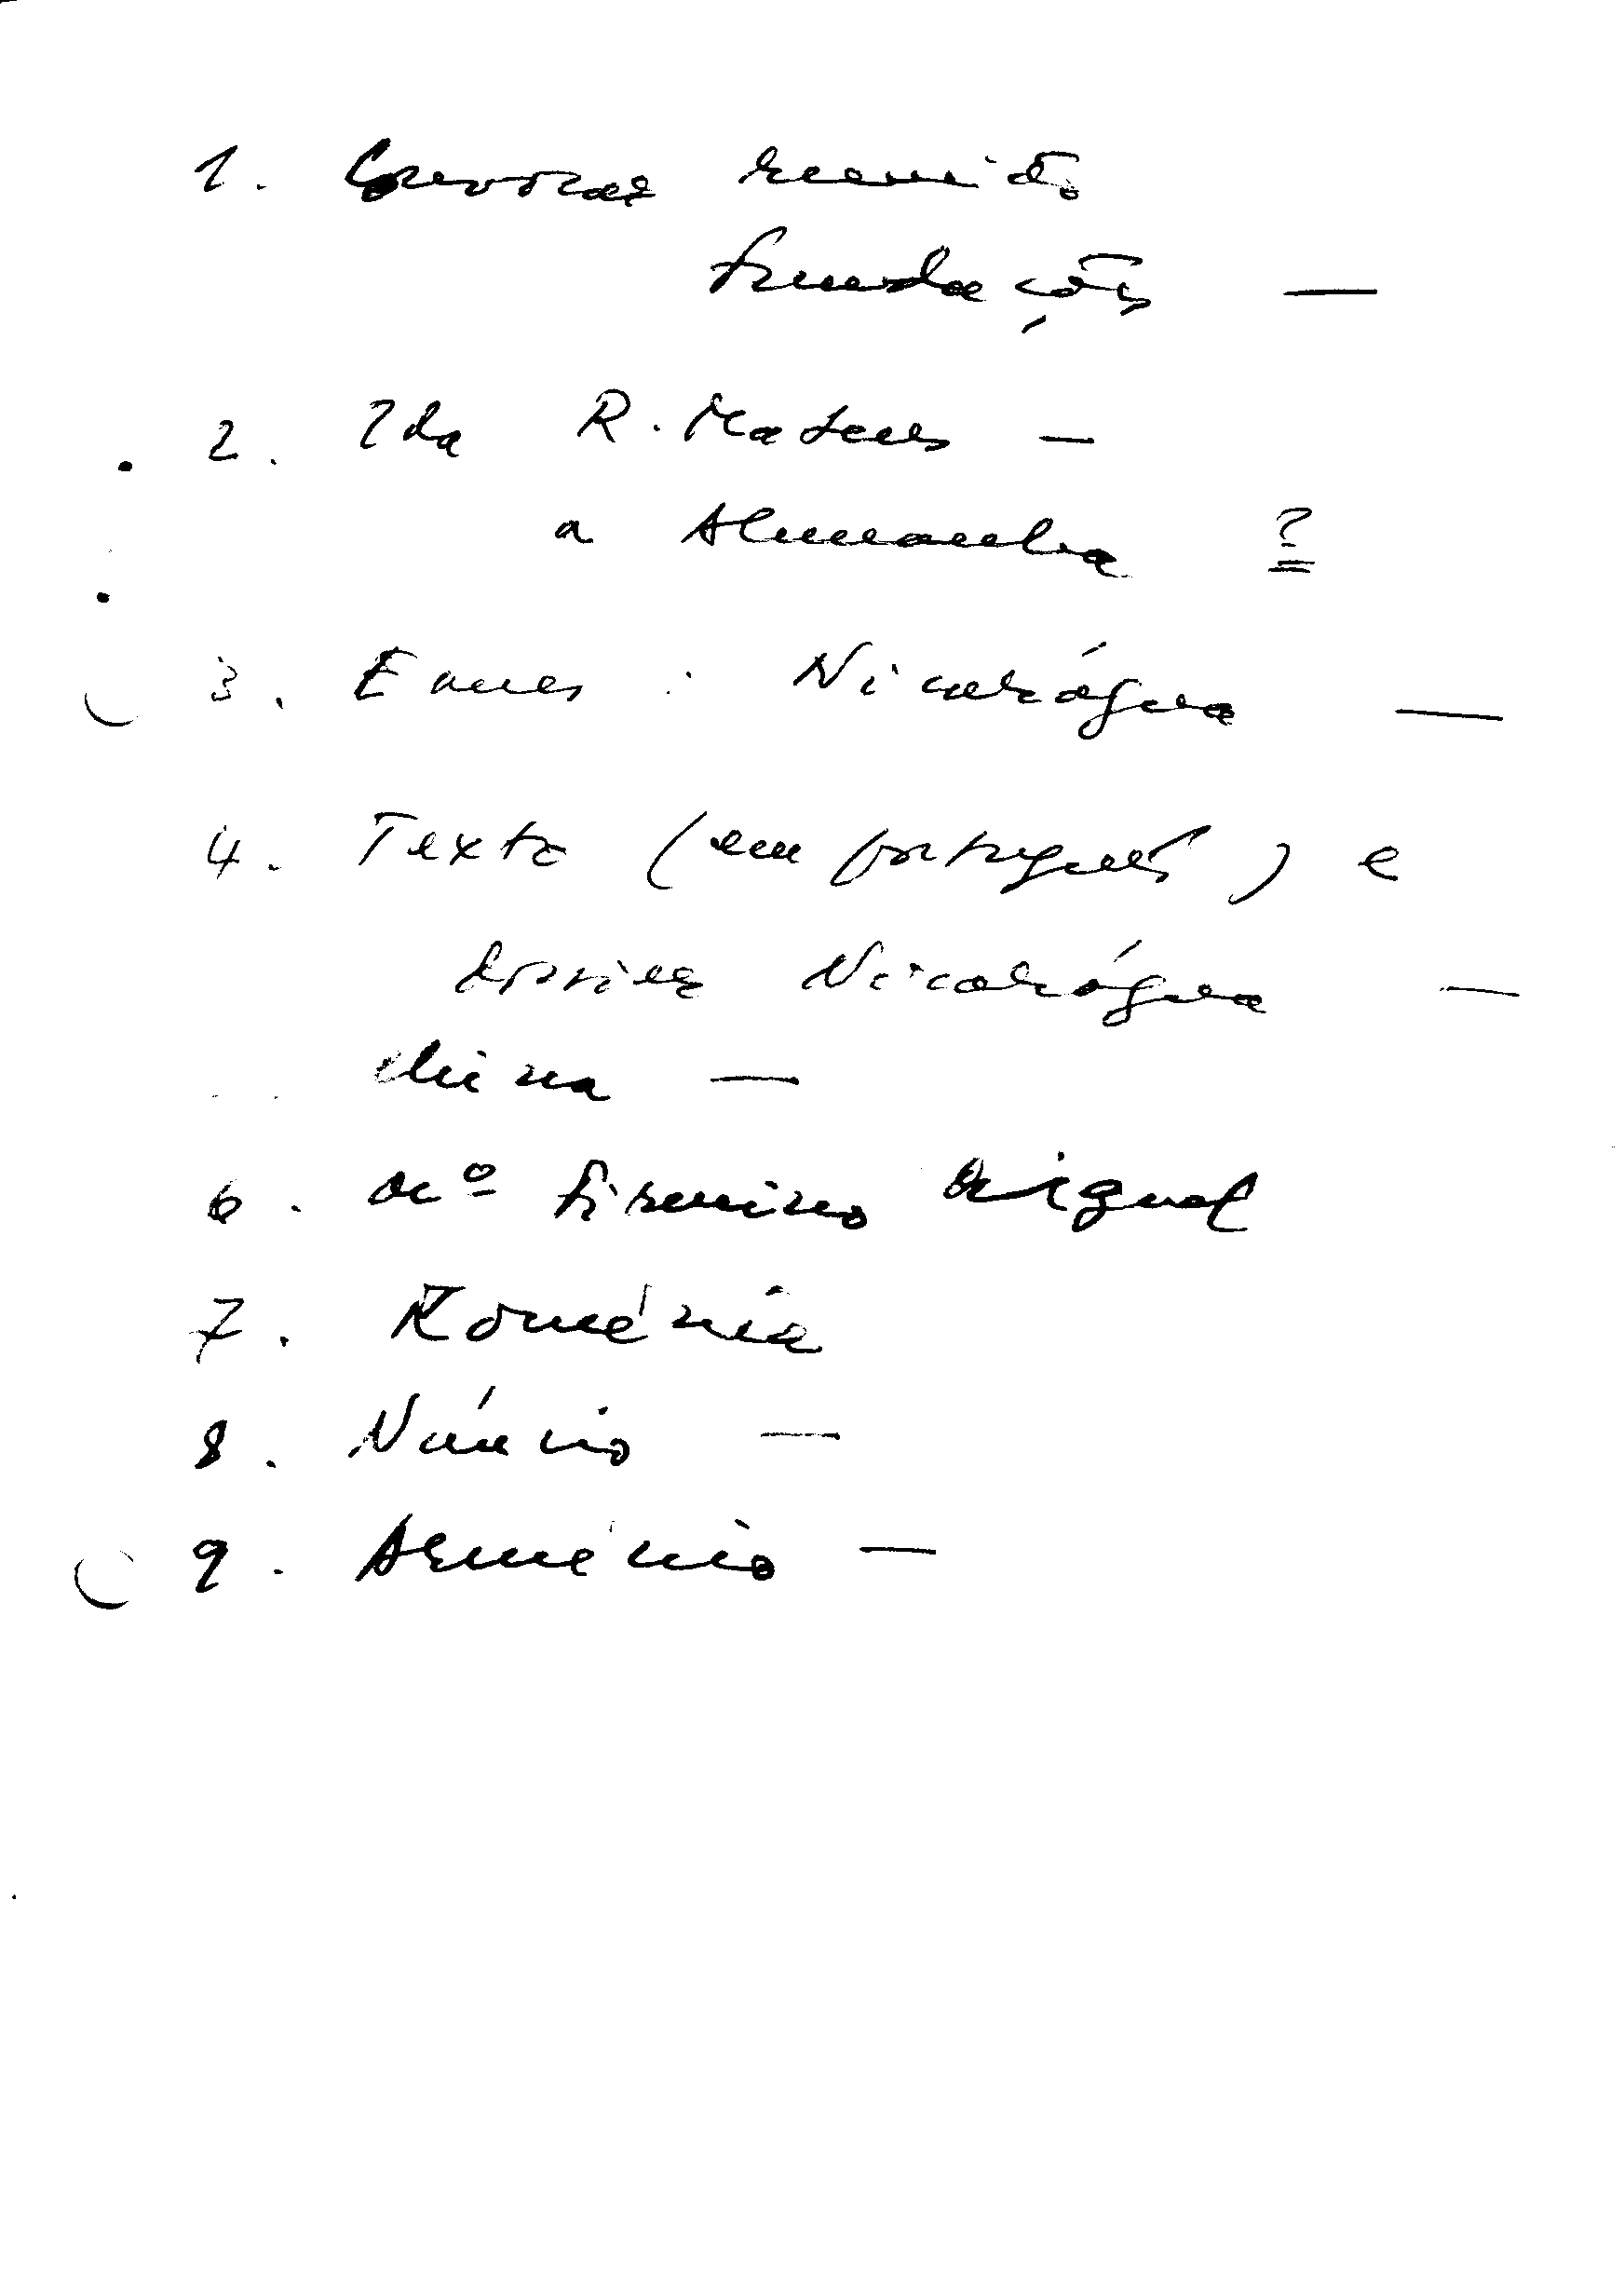 1. Convocar reunião
Fundações —
2. Ida R. Mateus —
a Alemanha ?
3. Eanes : Nicarágua —
4. Texto (em português) e
dossier Nicarágua —
China —
6. nº Firmino Miguel
7. Roménia
8. Núncio —
9. Arménio —